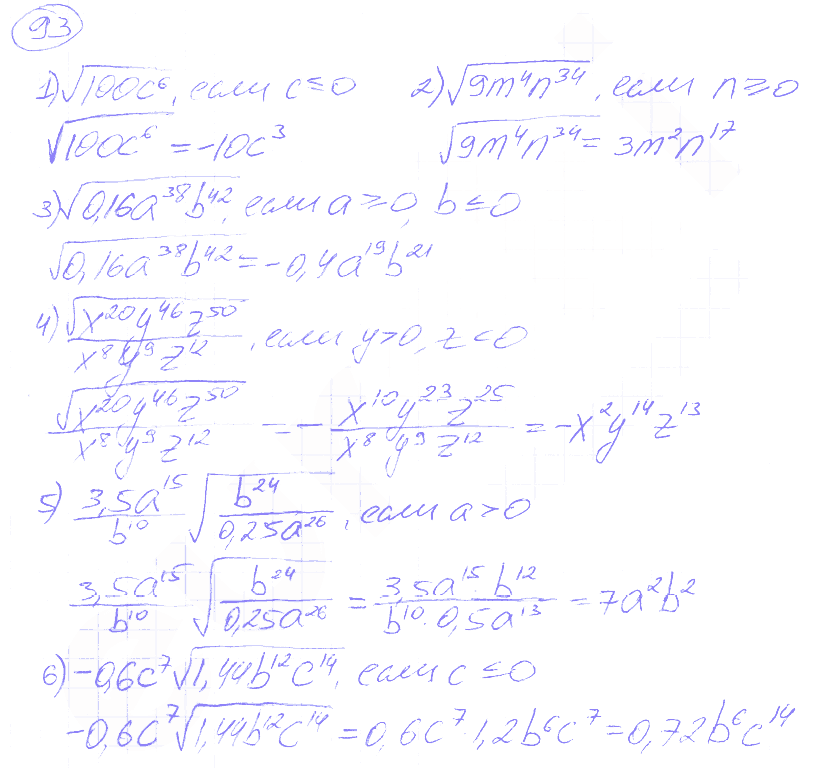 93
1) √100c⁶, если c ≤ 0 2) √9m⁴n³⁴, если n ≥ 0
√100c⁶ = -10c³ √9m⁴n³⁴ = 3m²n¹⁷
3) √0,16a³⁸b⁴², если a ≥ 0, b ≤ 0
√0,16a³⁸b⁴² = -0,4a¹⁹b²¹
4) √x²⁰y⁴⁶z⁵⁰ / x⁸y⁹z¹², если y > 0, z < 0
√x²⁰y⁴⁶z⁵⁰ / x⁸y⁹z¹² = - x¹⁰y²³z²⁵ / x⁸y⁹z¹² = -x²y¹⁴z¹³
5) 3,5a¹⁵ / b¹⁰ √b²⁴ / 0,25a²⁶, если a > 0
3,5a¹⁵ / b¹⁰ √b²⁴ / 0,25a²⁶ = 3,5a¹⁵ b¹² / b¹⁰ · 0,5a¹³ = 7a²b²
6) -0,6c⁷√1,44b¹²c¹⁴, если c ≤ 0
-0,6c⁷√1,44b¹²c¹⁴ = 0,6c⁷ · 1,2b⁶c⁷ = 0,72b⁶c¹⁴